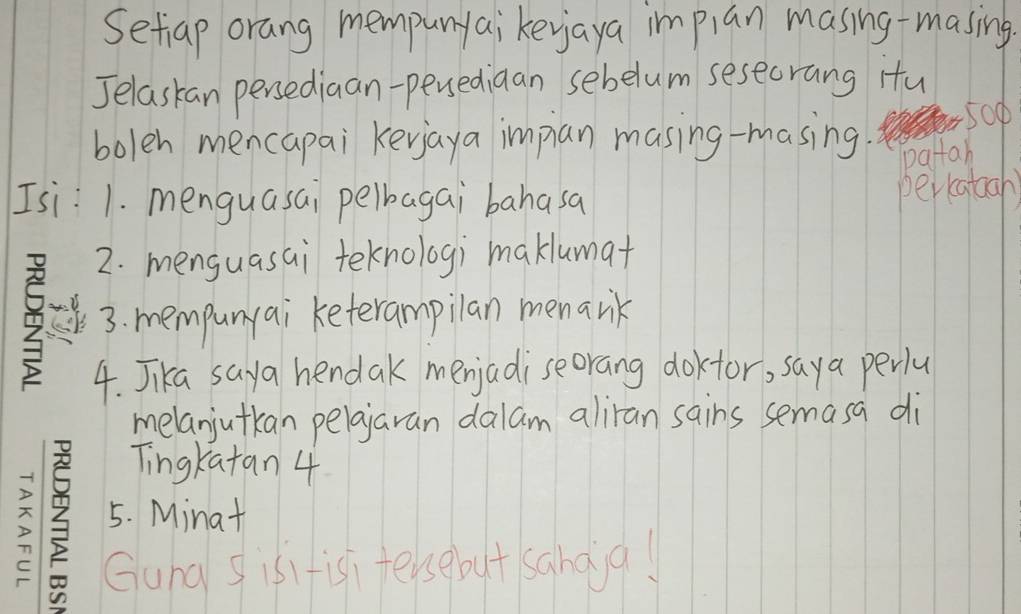 Setiap orang mempunyai kerjaya impian masing-masing.
Jelaskan persediaan-persediaan sebelum seseorang itu
boleh mencapai kerjaya impian masing-masing. 500
patah
perkataan)
Isi: 1. menguasai pelbagai bahasa
2. menguasai teknologi maklumat
3. mempunyai keterampilan menarik
4. Jika saya hendak menjadi seorang doktor, saya perlu
melanjutkan pelajaran dalam aliran sains semasa di
Tingkatan 4
5. Minat
Guna 5 isi-isi tersebut sahaja!
PRUDENTIAL
PRUDENTIAL BSN
TAKAFUL